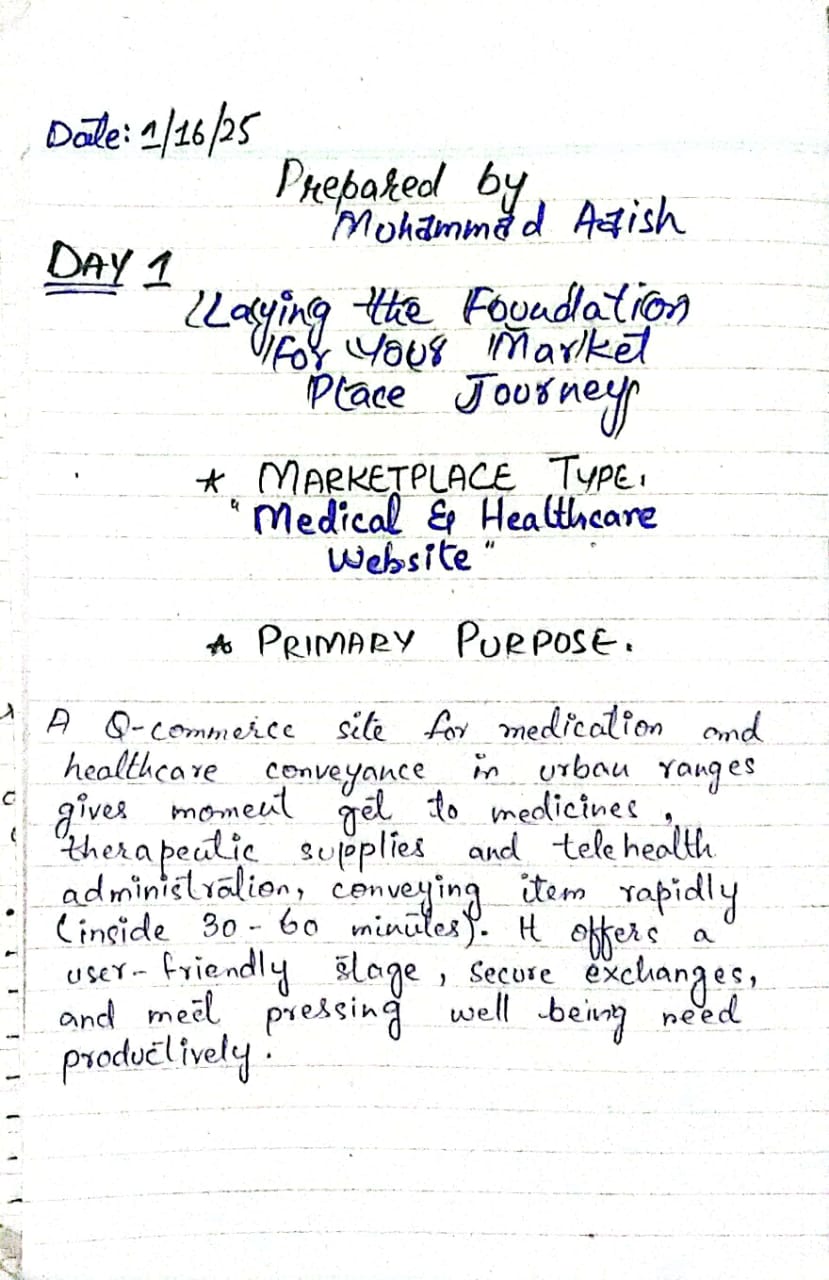 Date: 1/16/25
Prepared by
Mohammad
DAY 1
Laying the Foundation
for Your Market
Place Journey
* MARKETPLACE TYPE.
"Medical & Healthcare
Website"
* PRIMARY PURPOSE.
A Q-commerce site for medication and
healthcare conveyance in urban ranges
gives moment get to medicines,
therapeutic supplies and telehealth
administration, conveying item rapidly
(inside 30-60 minutes). It offers a
user-friendly stage, secure exchanges,
and meet pressing well being need
productively.